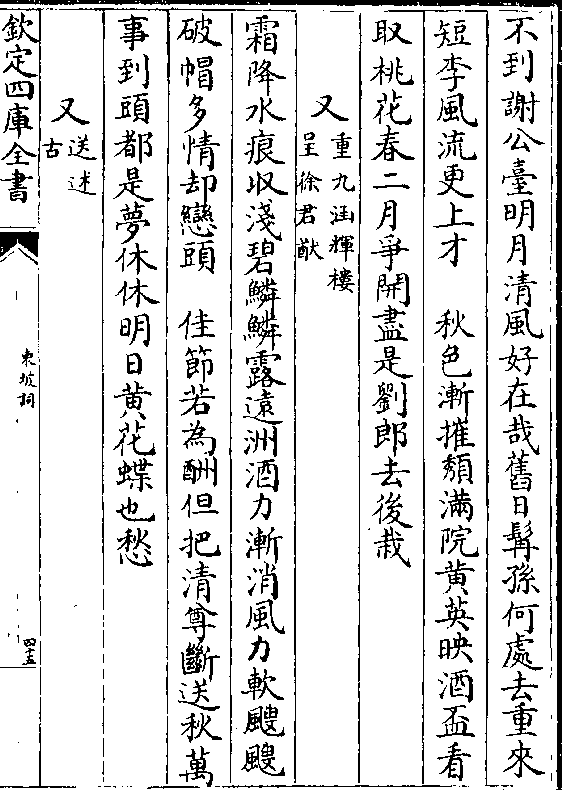 不到謝公臺明月清風好在哉舊日髯孫何處去重來
短李風流更上才　秋色漸摧頽滿院黄英映酒盃看
取桃花春二月爭開盡是劉郎去後栽
又重九涵輝樓
呈徐君猷
霜降水痕收淺碧鱗鱗露遠洲酒力漸消風力軟颼颼
破帽多情却戀頭　佳節若為酬但把清尊斷送秋萬
事到頭都是夢休休明日黄花蝶也愁
又送述
古
欽定四庫全書
東坡詞
四十五